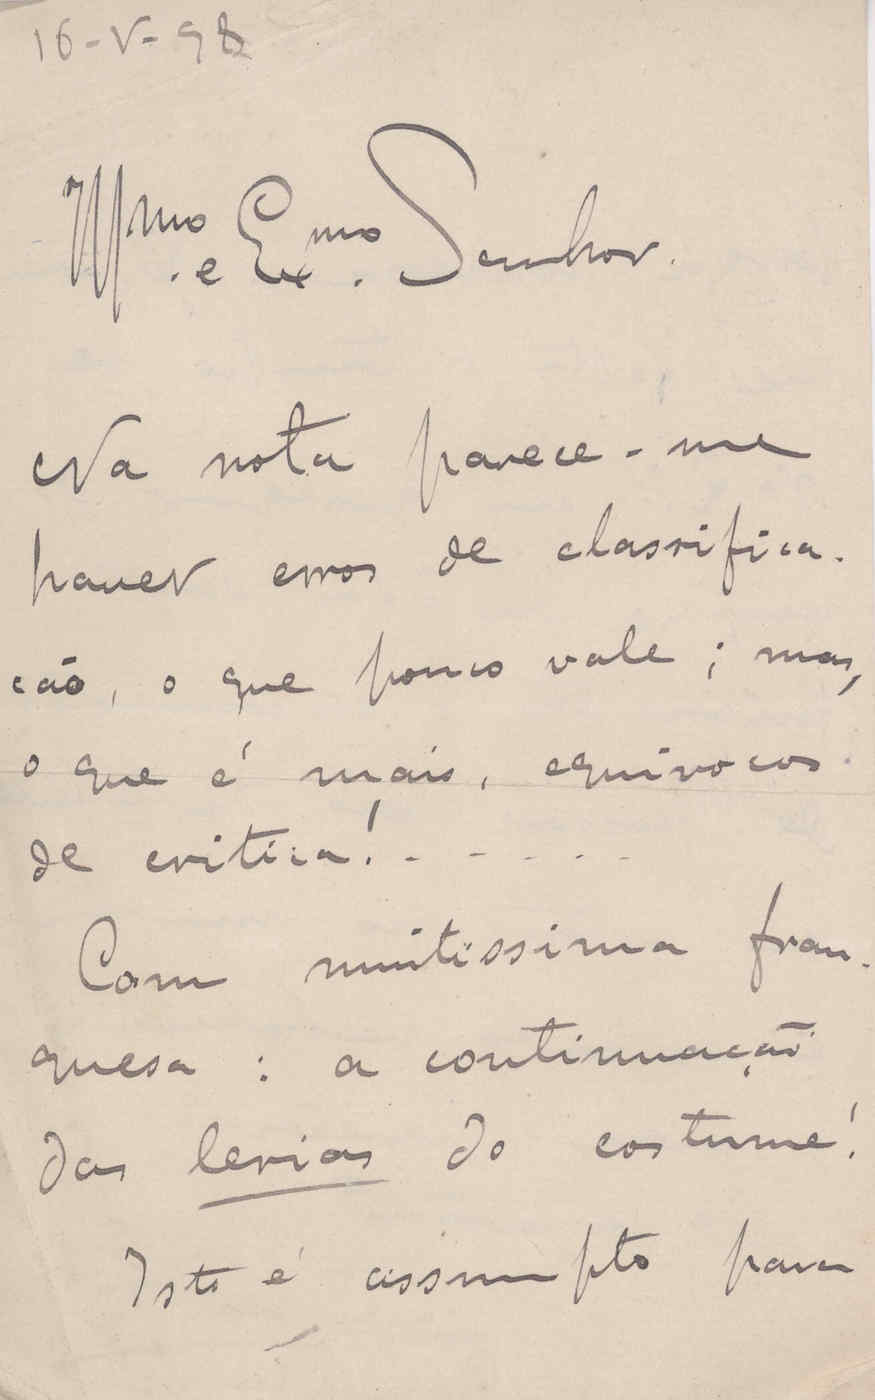 16-V-98
Illmo. e Exmo. Senhor.
Na nota parece-me
haver erros de classifica-
cão, o que pouco vale; mas,
o que é mais, equivocos
de critica! . - - . . -
Com muitissima fran-
quesa: a continuação
das lerias do costume!
Isto é assumpto para